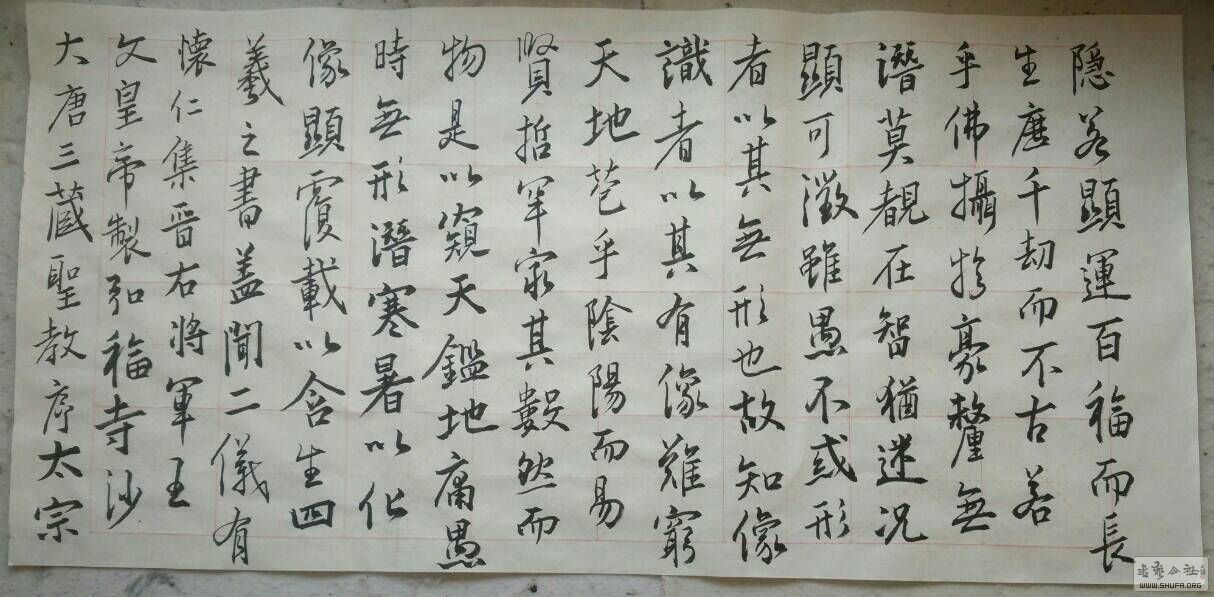 大唐三藏聖教序太宗
文皇帝製弘福寺沙
懷仁集晋右將軍王
羲之書蓋聞二儀有
像顯覆載以含生四
時無形潛寒暑以化
物是以窺天鑑地庸愚
賢哲罕窮其數然而
天地苞乎陰陽而易
識者以其有像難窮
者以其無形也故知像
顯可徵雖愚不惑形
潛莫覩在智猶迷況
乎佛攝於豪釐無
生歷千劫而不古若
隱若顯運百福而長
書藝公社
WWW.SHUFA.ORG